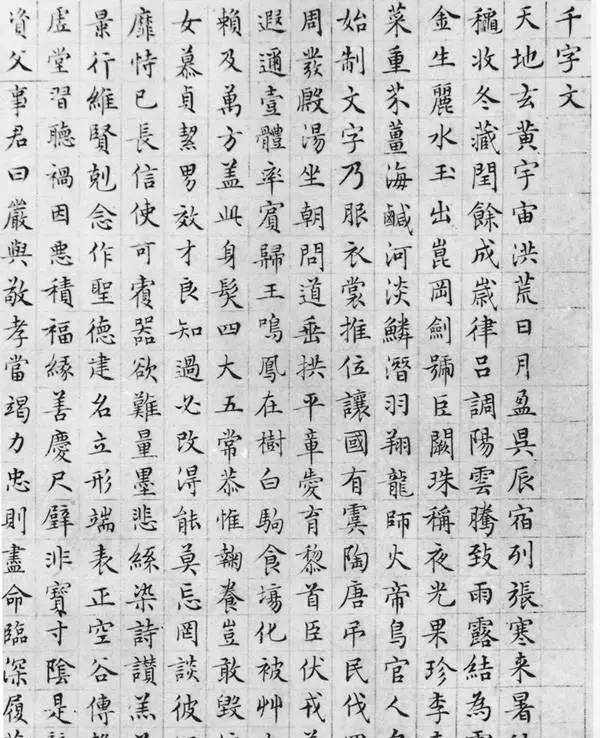 千字文
天地玄黄宇宙洪荒日月盈昃辰宿列張寒来暑
穐收冬藏閏餘成歲律吕調陽雲騰致雨露結為
金生麗水玉出崑岡劍號巨闕珠稱夜光果珍李
菜重芥薑海鹹河淡鱗潛羽翔龍師火帝鳥官人
始制文字乃服衣裳推位讓國有虞陶唐弔民伐
周發殷湯坐朝問道垂拱平章愛育黎首臣伏戎
遐邇壹體率賓歸王鳴鳳在樹白駒食場化被艸
賴及萬方蓋此身髮四大五常恭惟鞠養豈敢毀
女慕貞潔男效才良知過必改得能莫忘罔談彼
靡恃己長信使可覆器欲難量墨悲絲染詩讚羔
景行維賢剋念作聖德建名立形端表正空谷傳
虛堂習聽禍因惡積福緣善慶尺璧非寶寸陰是
資父事君曰嚴與敬孝當竭力忠則盡命臨深履